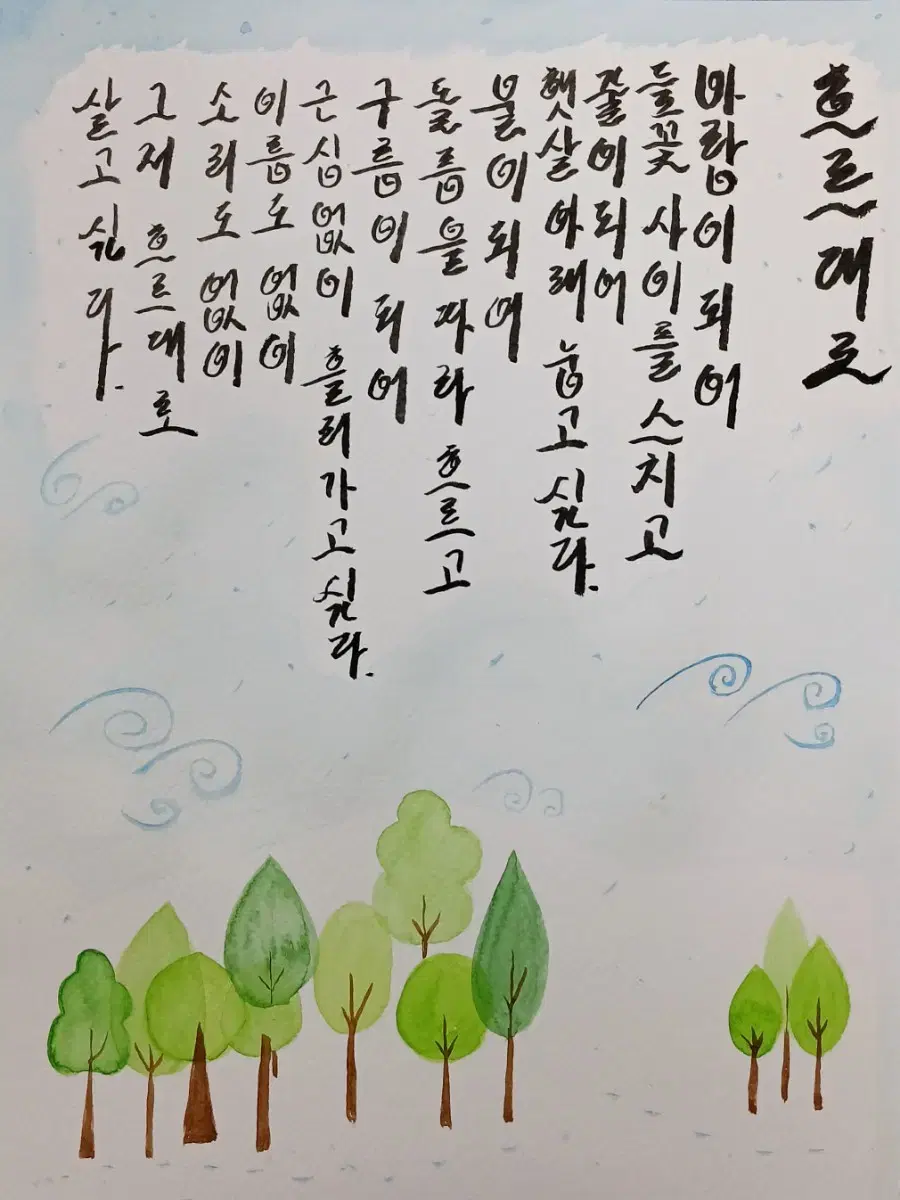 흐르대로
바람이 되어
들꽃 사이를 스치고
풀이 되어
햇살 아래 눕고 싶다.
물이 되어
돌틈을 따라 흐르고
구름이 되어
근심없이 흘러가고 싶다.
이름도 없이
소리도 없이
그저 흐르대로
살고 싶다.